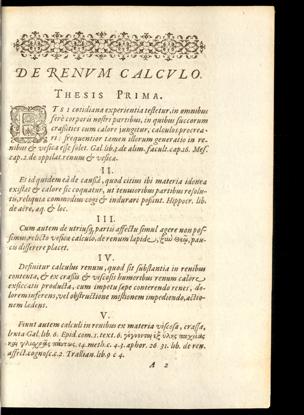 DE RENVM CALCVLO.
THESIS PRIMA.
ETSI cotidiana experientia testetur, in omnibus
ferè corporis nostri partibus, in quibus succorum
crassities cum calore jungitur, calculos procrea-
ri: frequentior tamen illorum generatio in re-
nibus & vesica esse solet. Gal. lib. 3. de alim. facult. cap. 26. Mes.
cap. 2. de oppilat. renum & vesicæ.
II.
Et id quidem eâ de causâ, quod citius ibi materia idonea
existat & calore sic coquatur, ut tenuioribus partibus resolu-
tis, reliqua commodius cogi & indurari possint. Hippocr. lib.
de aëre, aq. & loc.
III.
Cum autem de utriusq; partis affectu simul agere non pos-
simus, relicto vesicæ calculo, de renum lapide, pau-
cis differere placet.
IV.
Definitur calculus renum, quod sit substantia in renibus
contenta, & ex crassis & viscosis humoribus renum calore
exsiccatis producta, cum impetu sæpe conterendo renes, do-
lorem inferens, vel obstructione mictionem impediendo, actio-
nem lædens.
V.
Fiunt autem calculi in renibus ex materia viscosa, crassa,
lenta Gal. lib. 6. Epid. com. 1. text. 6. γίγνονται ἐξ ὕλης παχείας
καὶ γλίσχρας πάντως. 14. meth. c. 4. 3. aphor. 26. 31. lib. de ren.
affect. cognosc. c. 2. Trallian. lib. 9 c 4.
A 2